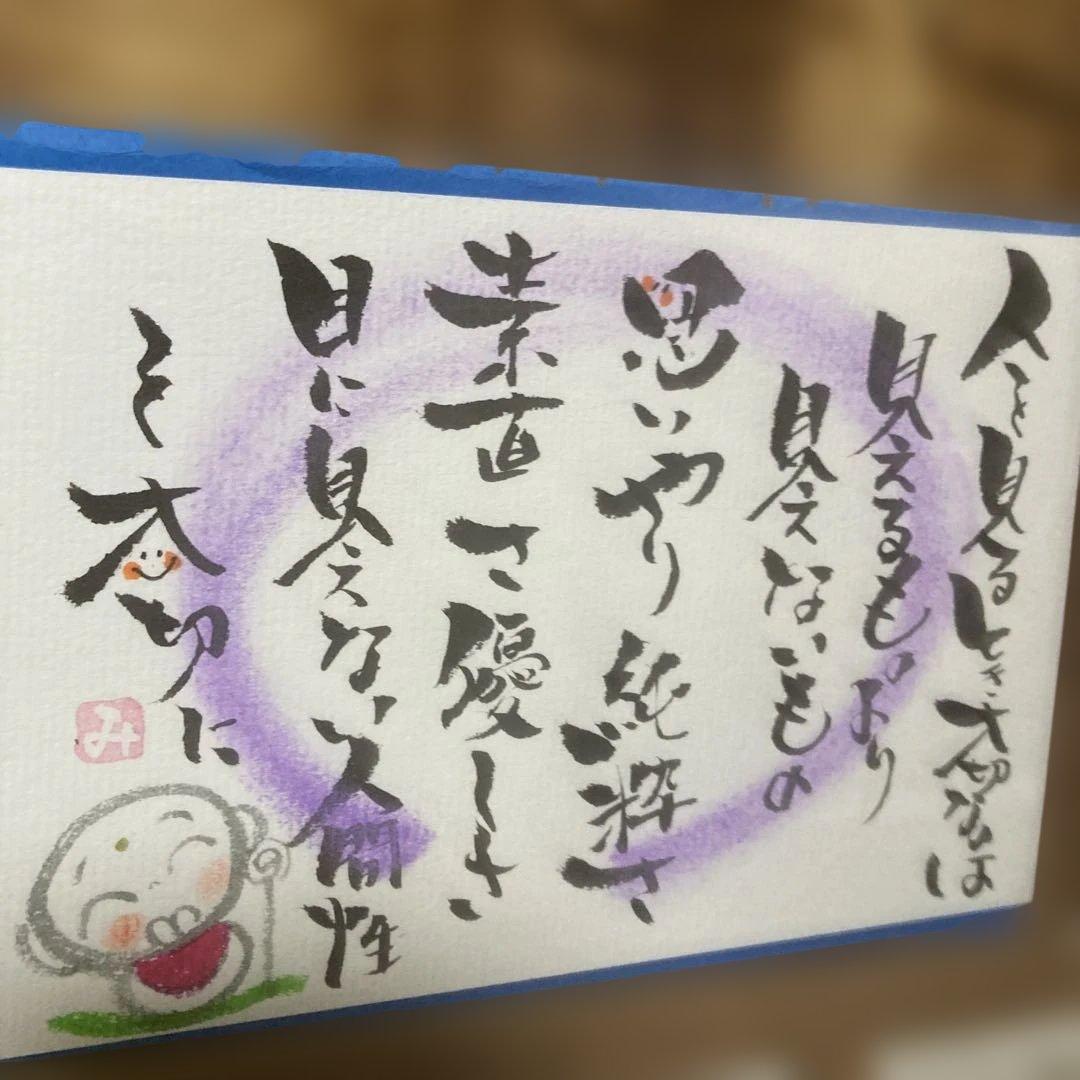 人を見るとき大切なのは
見えるものより
見えないもの
思いやり 純粋さ
素直さ 優しさ
目に見えない人間性
こそ大切に
み